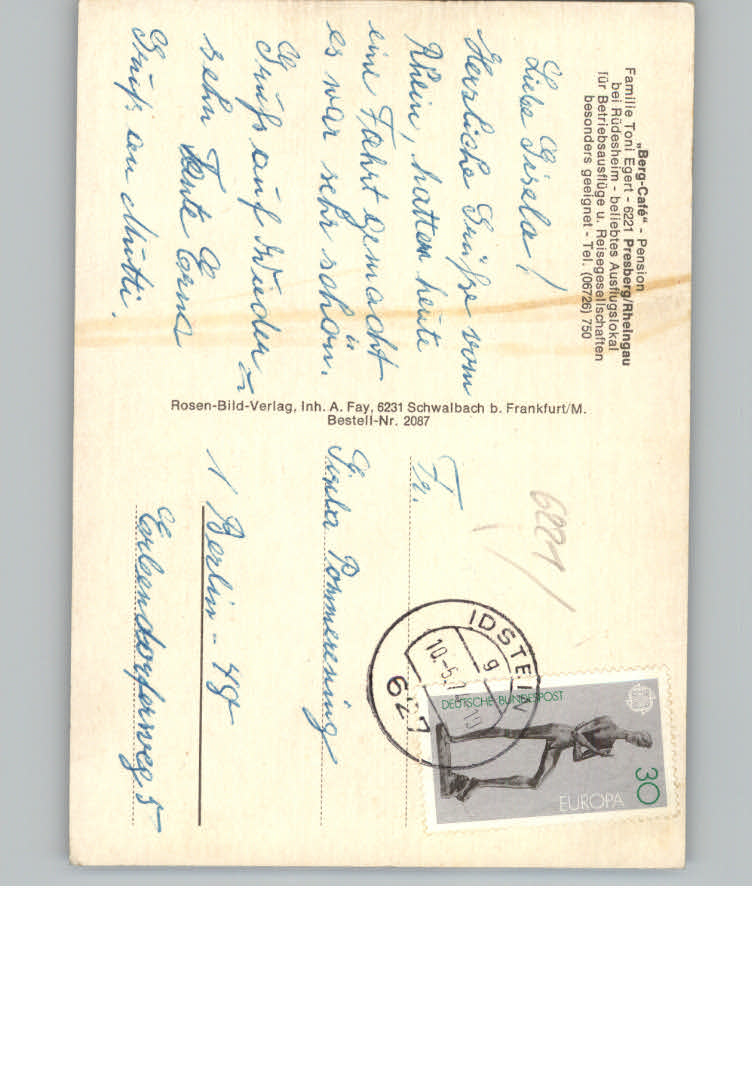 „Berg-Café" - Pension
Familie Toni Egert - 6221 Presberg/Rheingau
bei Rüdesheim - beliebtes Ausflugslokal
für Betriebsausflüge u. Reisegesellschaften
besonders geeignet - Tel. (06726) 750
Liebe Gisela!
Herzliche Grüße vom
Rhein, hatten heute
eine Fahrt gemacht
es war sehr schön.
Gruß auf Wieder-
sehn Tante Erna
Gruß an Mutti.
Rosen-Bild-Verlag, Inh. A. Fay, 6231 Schwalbach b. Frankfurt/M.
Bestell-Nr. 2087
6221
Fr.
Gisela Pommerening
1 Berlin - 48
Erbendorferweg 5
IDSTEIN
g
10.-5.7
627
DEUTSCHE BUNDESPOST
EUROPA
30